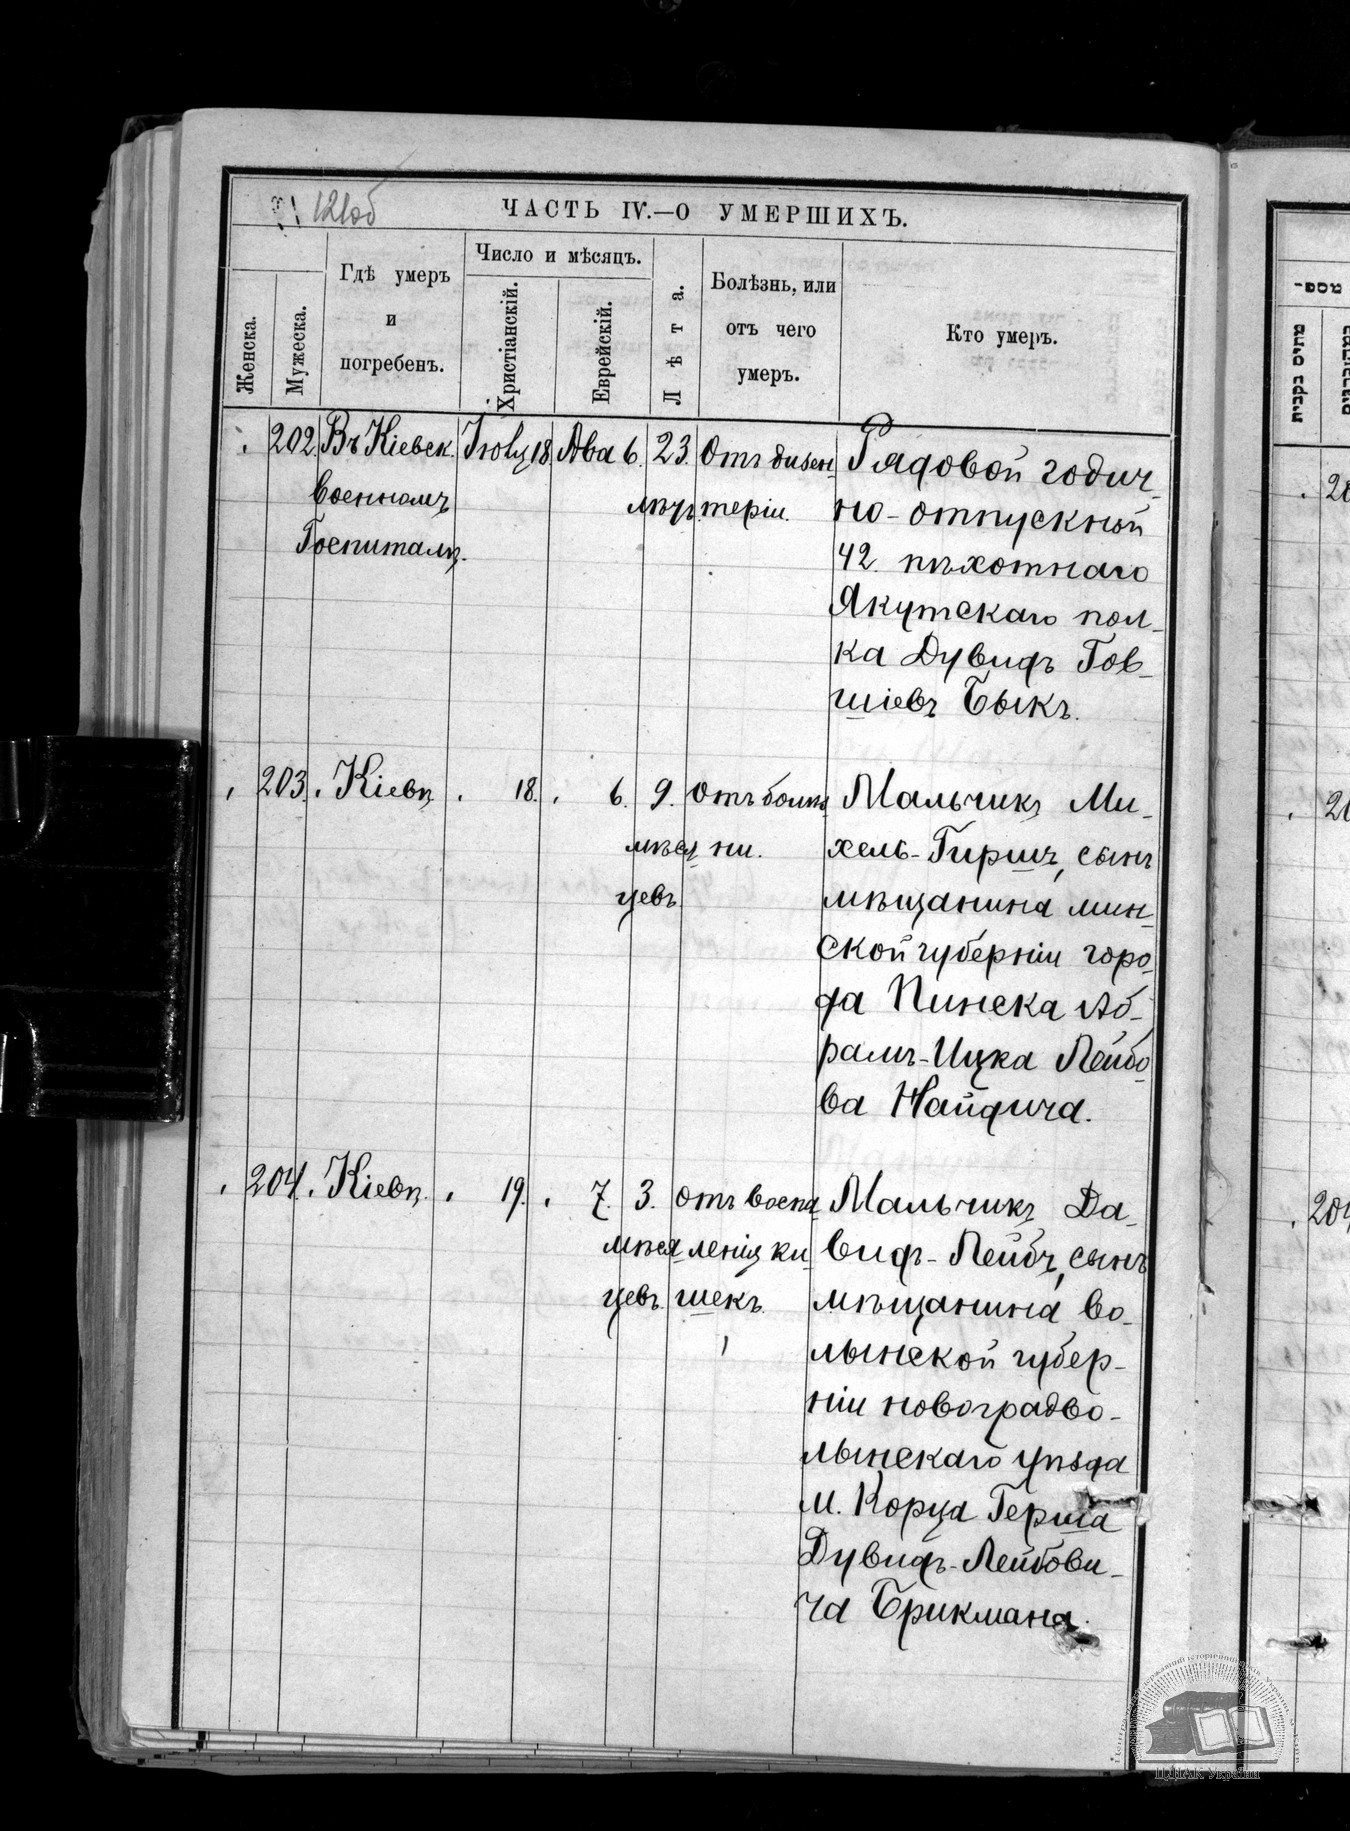 121об
ЧАСТЬ IV.—О УМЕРШИХЪ.
Женска.
Мужеска.
Гдѣ умеръ
и
погребенъ.
Число и мѣсяцъ.
Христіанскій.
Еврейскій.
Лѣта.
Болѣзнь, или
отъ чего
умеръ.
Кто умеръ.
202. Въ Кіевск. Іюля 18. Ава 6. 23. Отъ дизен-
военномъ
Госпиталѣ.
лѣтъ. теріи.
Рядовой годич-
но-отпускной
42. пѣхотнаго
Якутскаго пол-
ка Дувидъ Гов-
шіевъ Быкъ.
203. Кіевѣ. 18. 6. 9. Отъ болѣз-
мѣся- ни.
цевъ.
Мальчикъ Ми-
хель-Гиршъ, сынъ
мѣщанина мин-
ской губерніи горо-
да Пинска Аб-
рамъ-Ицка Лейбо-
ва Найдича.
204. Кіевѣ. 19. 7. 3. отъ воспа-
мѣся- ленія ки-
цевъ. шекъ.
Мальчикъ Да-
видъ-Лейбъ, сынъ
мѣщанина во-
лынской губер-
ніи новоградво-
лынскаго уѣзда
м. Корца Герша
Дувидъ-Лейбови-
ча Брикмана.
מחיס נקבית
204
ЦДІАК України